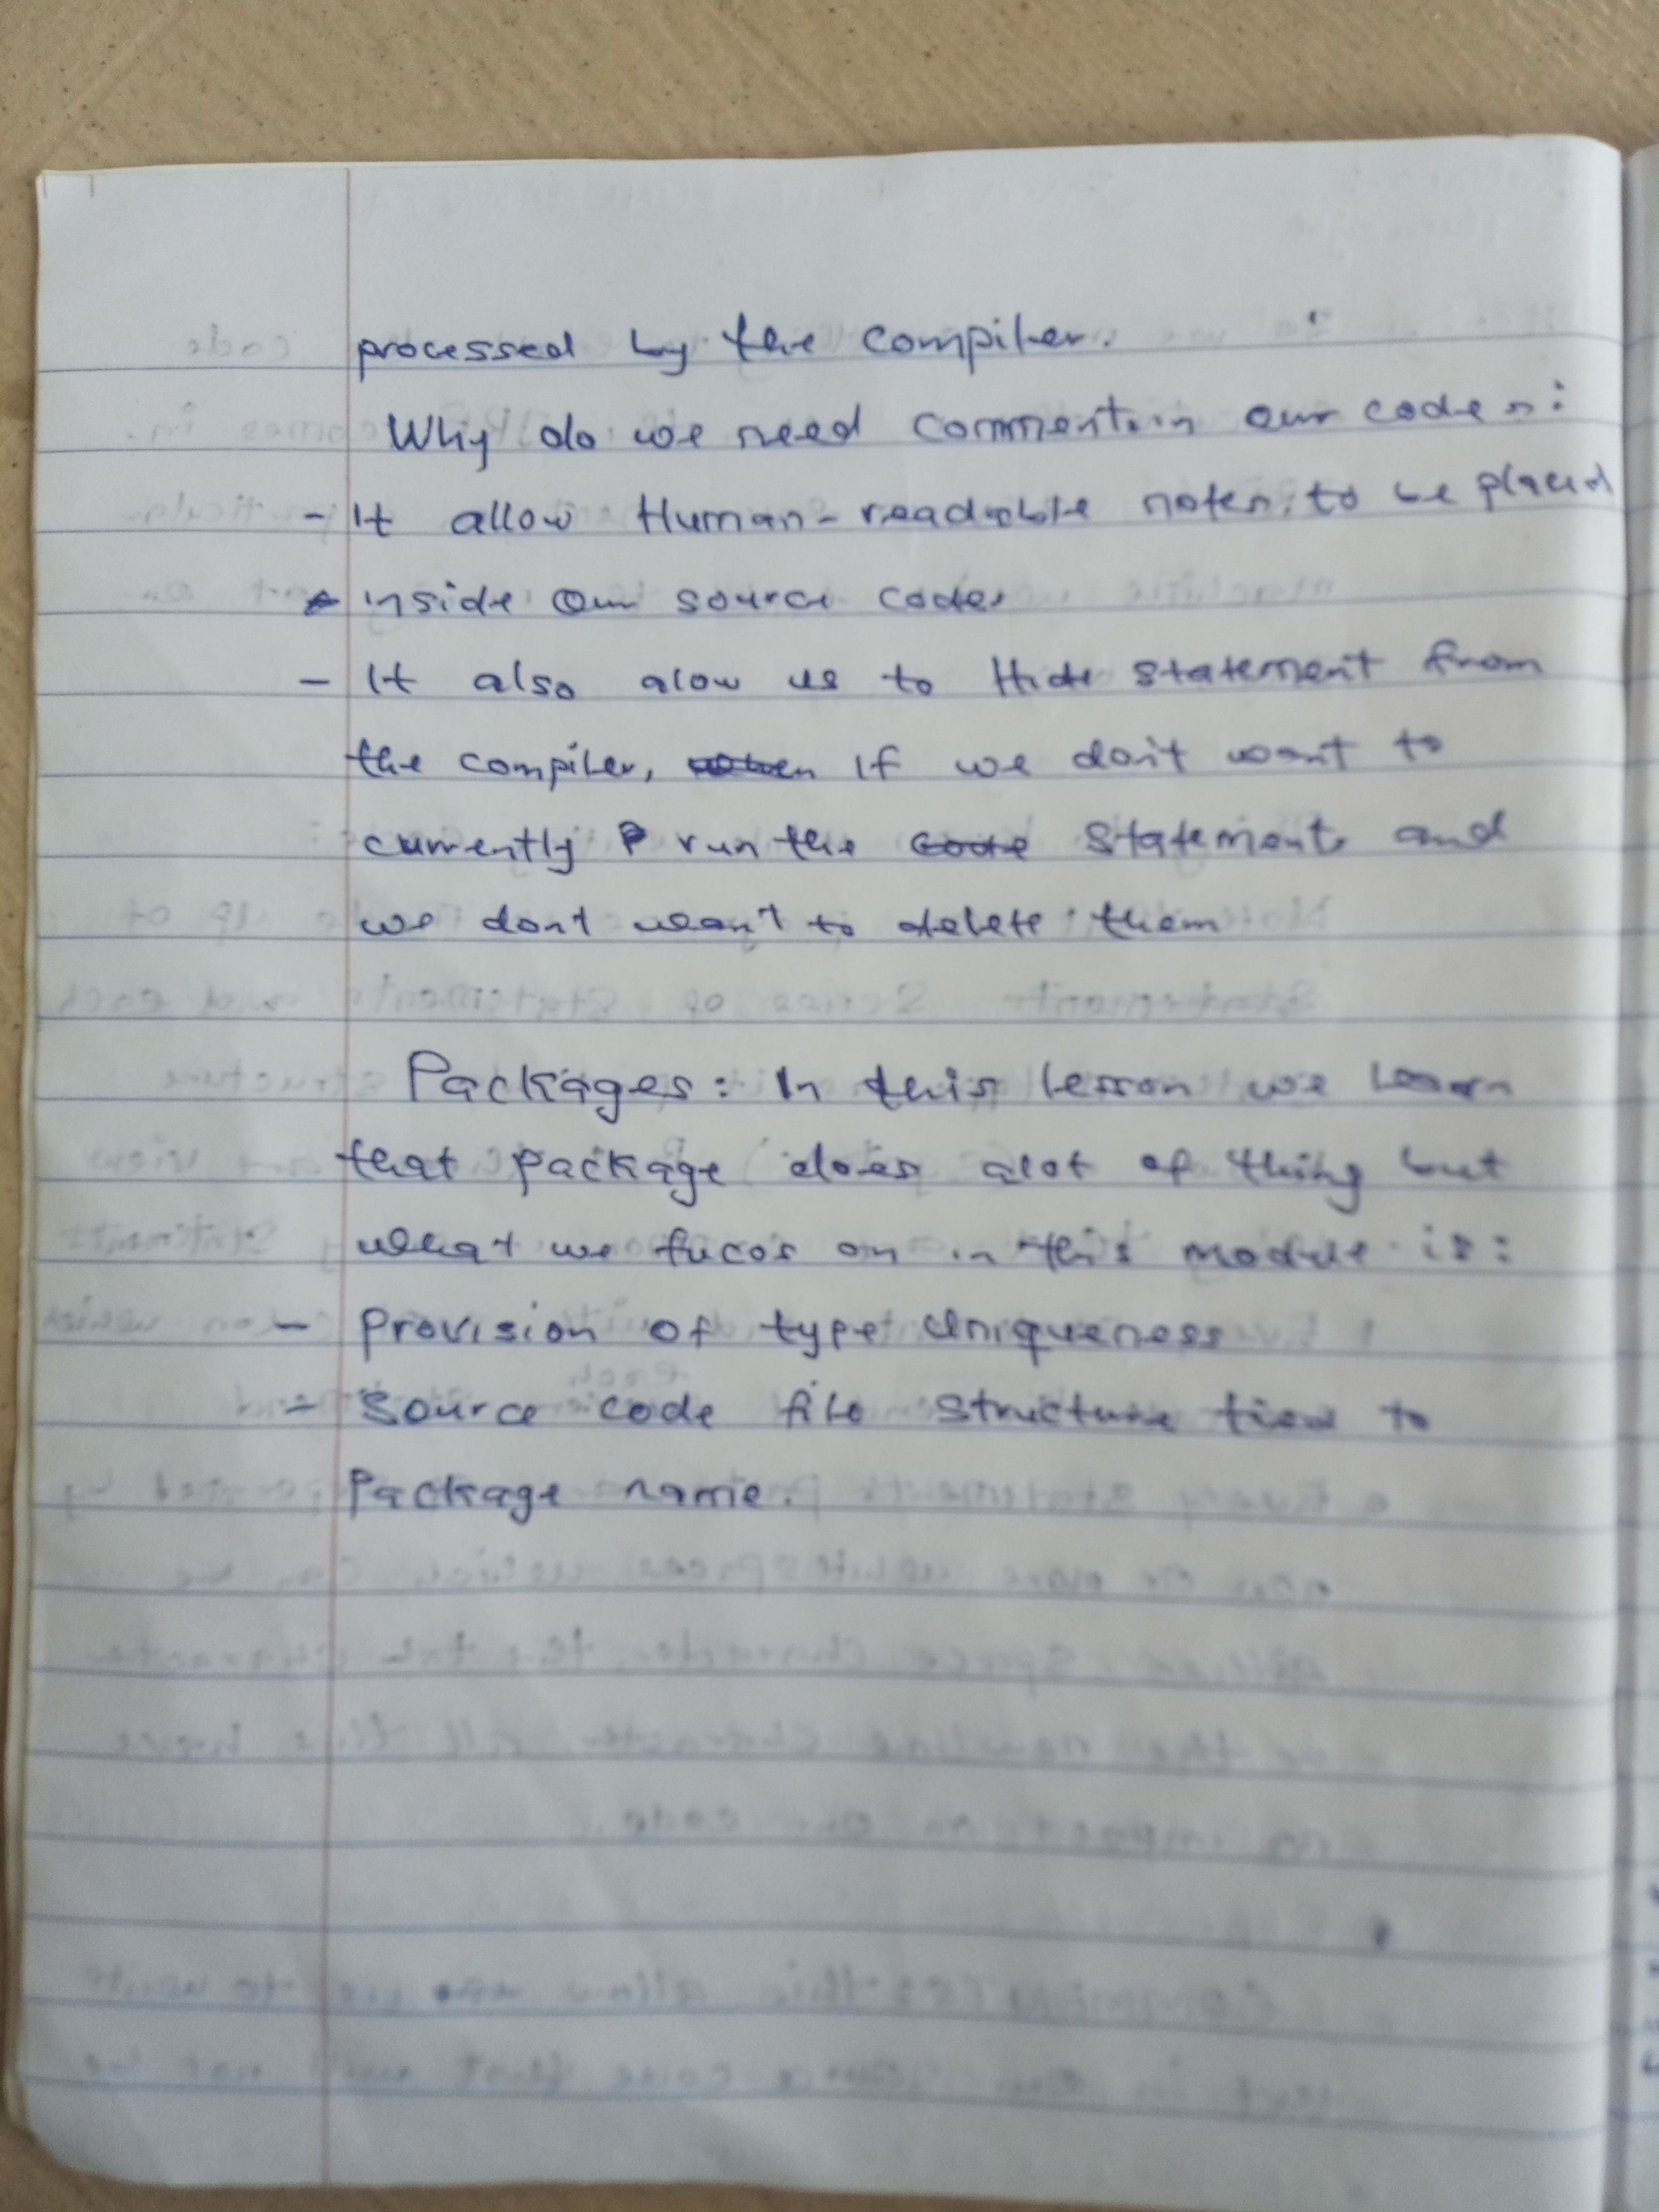 processed by the compiler.
Why do we need comment in our codes:
- It allow Human-readable notes to be placed
inside our source codes
- It also alow us to Hide statement from
the compiler, when if we don't want to
currently run the code statements and
we don't want to delete them
Packages: In this lesson we learn
that package does alot of thing but
what we fucos on in this module is:
- Provision of type uniqueness
- Source code file structure tied to
Package name.